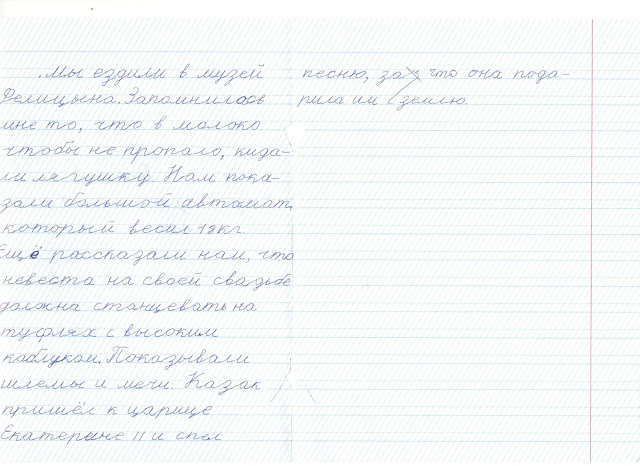 .Мы ездили в музей
Фелицына. Запомнилось
мне то, что в молоко
чтобы не пропало, кида-
ли лягушку. Нам пока-
зали большой автомат,
который весил 12кг
Ещё рассказали нам, что
невеста на своей свадьбе
должна станцевать на
туфлях с высоким
каблуком. Показывали
шлемы и мечи. Казак
пришёл к царице
Екатерине II и спел
песню, за что она пода-
рила им землю.